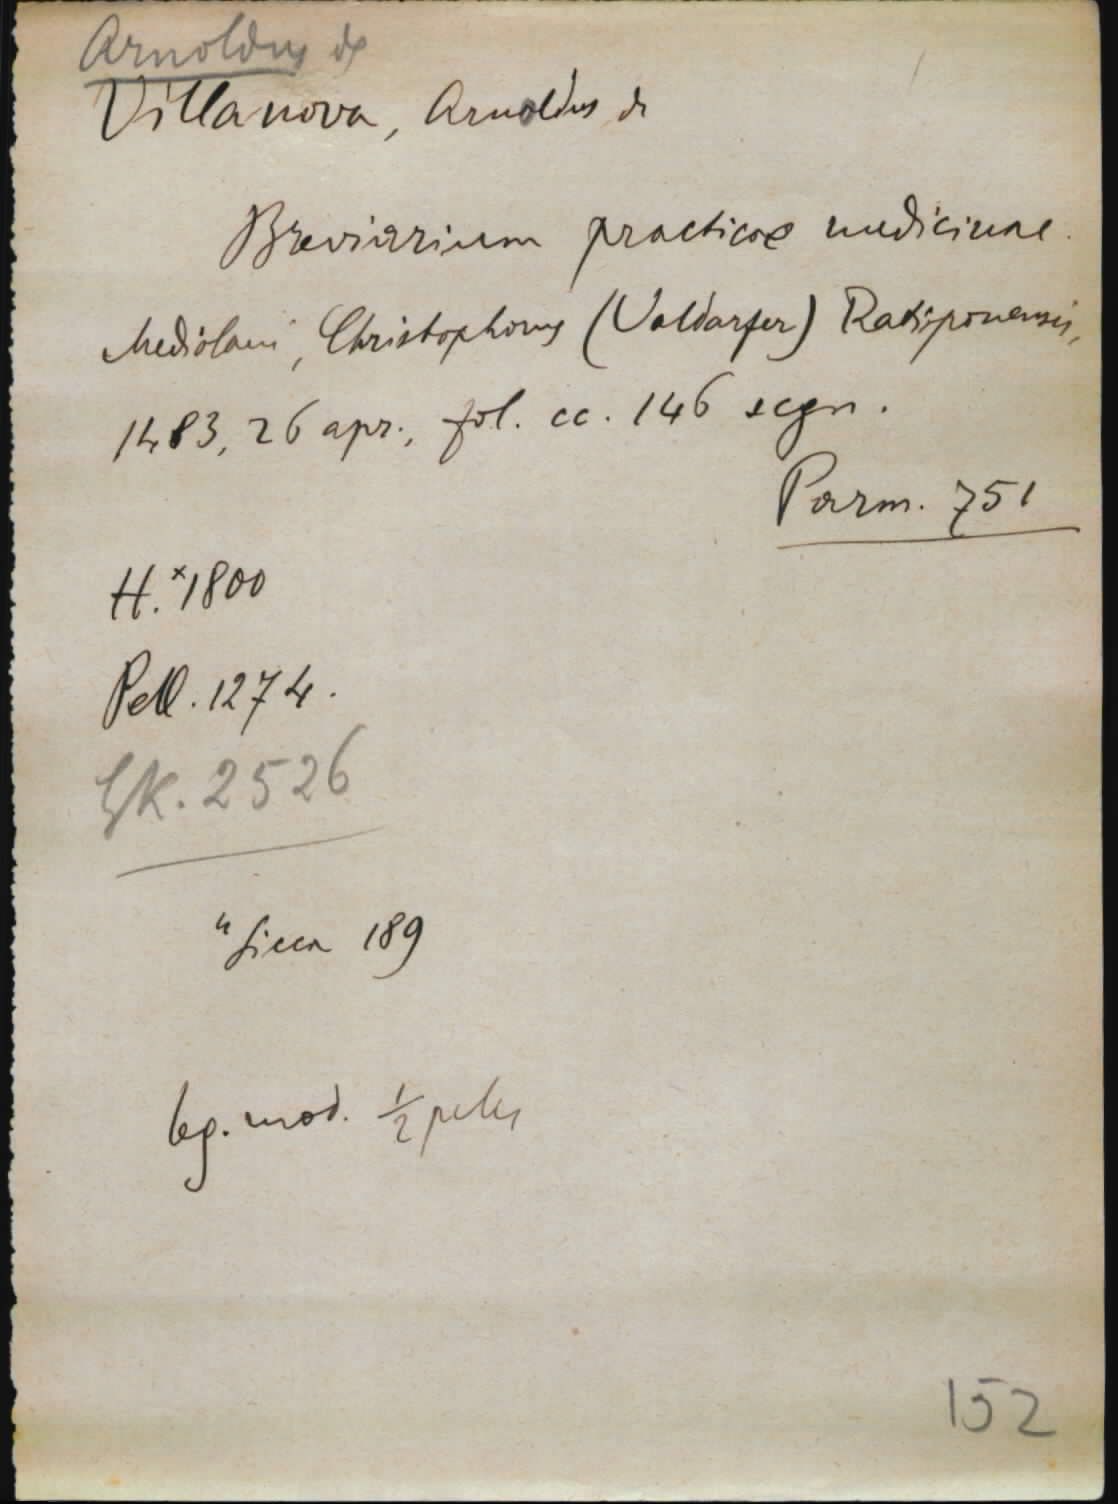 Arnoldus de
Villanova, Arnoldus de
Breviarium practicae medicinae.
Mediolani, Christophorus (Valdarfer) Ratisponensis,
1483, 26 apr., fol. cc. 146 segn.
Parm. 751
H. x1800
Pell. 1274.
GK. 2526
189
leg. mod. 1/2 pelle
152